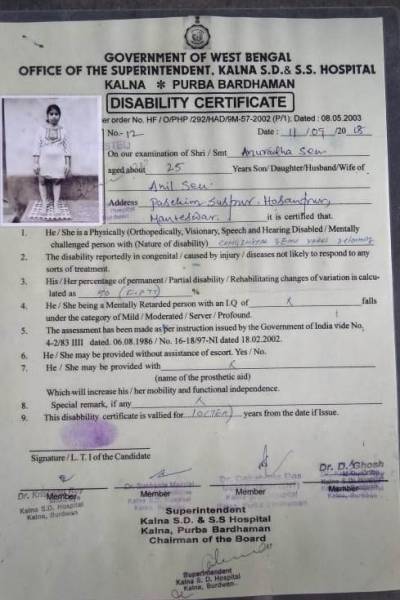 GOVERNMENT OF WEST BENGAL
OFFICE OF THE SUPERINTENDENT, KALNA S.D.& S.S. HOSPITAL
KALNA * PURBA BARDHAMAN
DISABILITY CERTIFICATE
er order No. HF / O/PHP /292/HAD/9M-57-2002 (P/1) ; Dated : 08.05.2003
No.-12 Date : 11/07/2018
On our examination of Shri / Smt Anuradha Sen
aged about 25 Years Son/Daughter/Husband/Wife of
Anil Sen
Address Paschim
Manteswar. it is certified that.
1. He / She is a Physically (Orthopedically, Visionary, Speech and Hearing Disabled / Mentally
challenged person with (Nature of disability) CONGENITAL
2. The disability reportedly in congenital / caused by injury / diseases not likely to respond to any
sorts of treatment.
3. His / Her percentage of permanent / Partial disability / Rehabilitating changes of variation is calcu-
lated as 50 (FIFTY) %
4. He / She being a Mentally Retarded person with an I.Q of X falls
under the category of Mild / Moderated / Server / Profound.
5. The assessment has been made as her instruction issued by the Government of India vide No.
4-2/83 IIII dated. 06.08.1986 / No. 16-18/97-NI dated 18.02.2002.
6. He / She may be provided without assistance of escort. Yes / No.
7. He / She may be provided with X
(name of the prosthetic aid)
Which will increase his / her mobility and functional independence.
8. Special remark, if any X
9. This disability certificate is vallied for 10(TEN) years from the date if Issue.
Signature / L. T. I of the Candidate
Dr. D. Ghosh
Member Member Member Member
Kalna S.D. Hospital
Kalna, Burdwan
Superintendent
Kalna S.D. & S.S Hospital
Kalna, Purba Bardhaman
Chairman of the Board
Superintendent
Kalna S. D. Hospital
Kalna, Burdwan